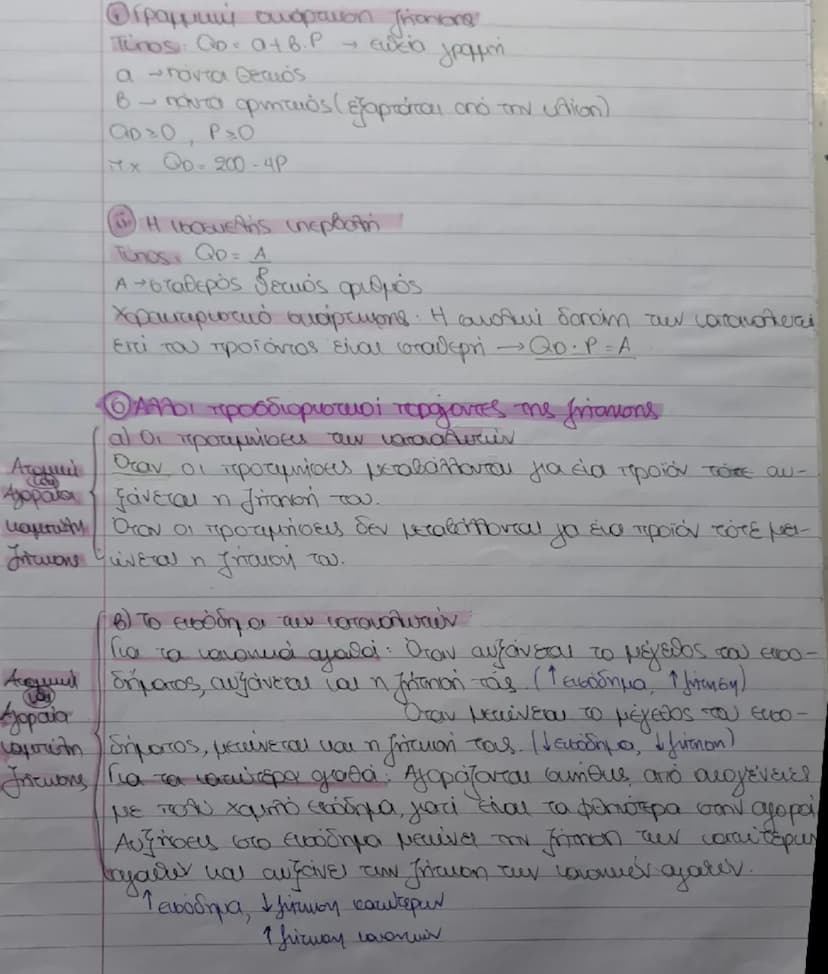 ① Γραμμική συνάρτηση ζήτησης
Τύπος: QD = α + β · P → ευθεία γραμμή
α → πάντα θετικός
β → πάντα αρνητικός (εξαρτάται από την κλίση)
QD ≥ 0 , P ≥ 0
πχ QD = 200 - 4P
ⅱ Η ισοσκελής υπερβολή
Τύπος: QD = A
A → σταθερός θετικός αριθμός
Χαρακτηριστικό συνάρτησης: Η συνολική δαπάνη των καταναλωτών
επί του προϊόντος είναι σταθερή → QD · P = A
⑥ Άλλοι προσδιοριστικοί παράγοντες της ζήτησης
α) Οι προτιμήσεις των καταναλωτών
Όταν οι προτιμήσεις μεταβάλλονται για ένα προϊόν τότε αυ-
ξάνεται η ζήτησή του.
Όταν οι προτιμήσεις δεν μεταβάλλονται για ένα προϊόν τότε μει-
ώνεται η ζήτησή του.
Ατομική
και
Αγοραία
καμπύλη
ζήτησης
β) Το εισόδημα των καταναλωτών
Για τα κανονικά αγαθά: Όταν αυξάνεται το μέγεθος του εισο-
δήματος, αυξάνεται και η ζήτησή τους (↑ εισόδημα, ↑ ζήτηση)
Όταν μειώνεται το μέγεθος του εισο-
δήματος, μειώνεται και η ζήτησή τους. (↓ εισόδημα, ↓ ζήτηση)
Για τα κατώτερα αγαθά: Αγοράζονται συνήθως από οικογένειες
με πολύ χαμηλό εισόδημα, γιατί είναι τα φθηνότερα στην αγορά
Αυξήσεις στο εισόδημα μειώνει την ζήτηση των κατώτερων
αγαθών και αυξάνει την ζήτηση των κανονικών αγαθών.
↑ εισόδημα, ↓ ζήτηση κατώτερων
↑ ζήτηση κανονικών
Ατομική
και
Αγοραία
καμπύλη
ζήτησης